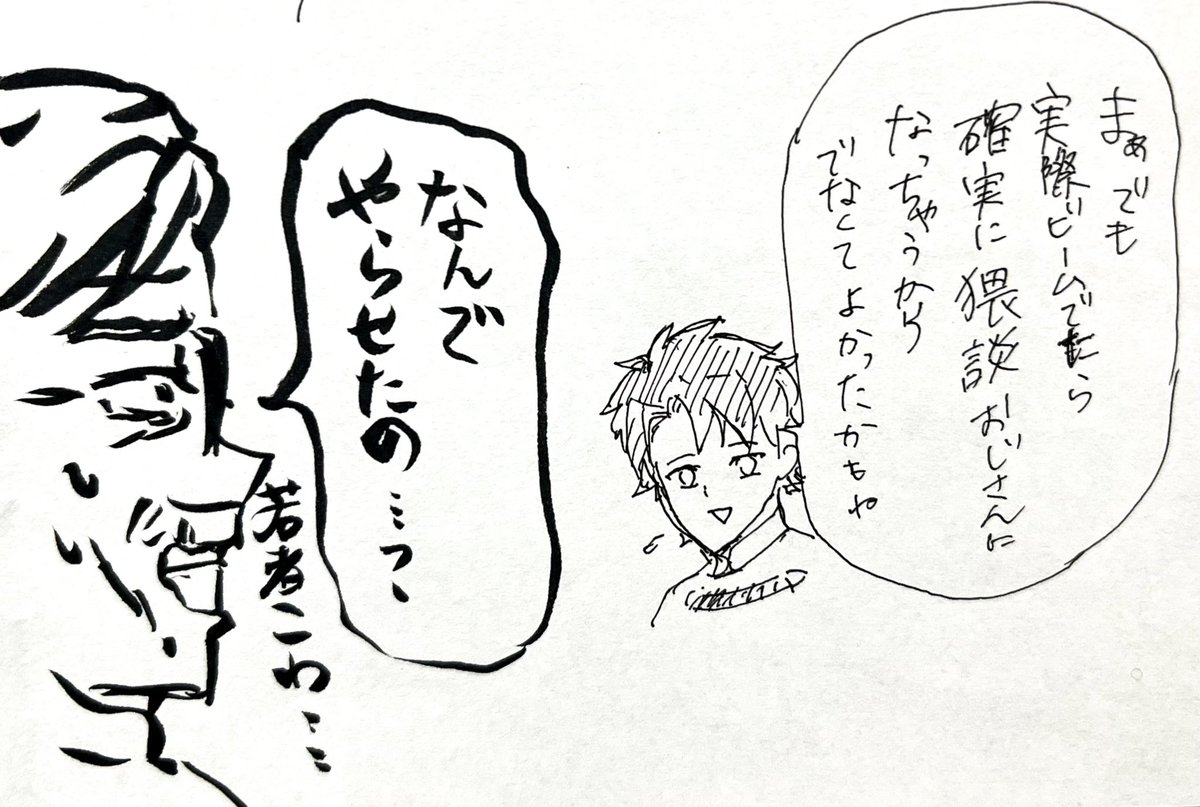 まぁでも
実際ビームでたら
確実に猥談おじさんに
なっちゃうから
でなくてよかったかもね
なんで
やらせたの…っ
若者こわ…